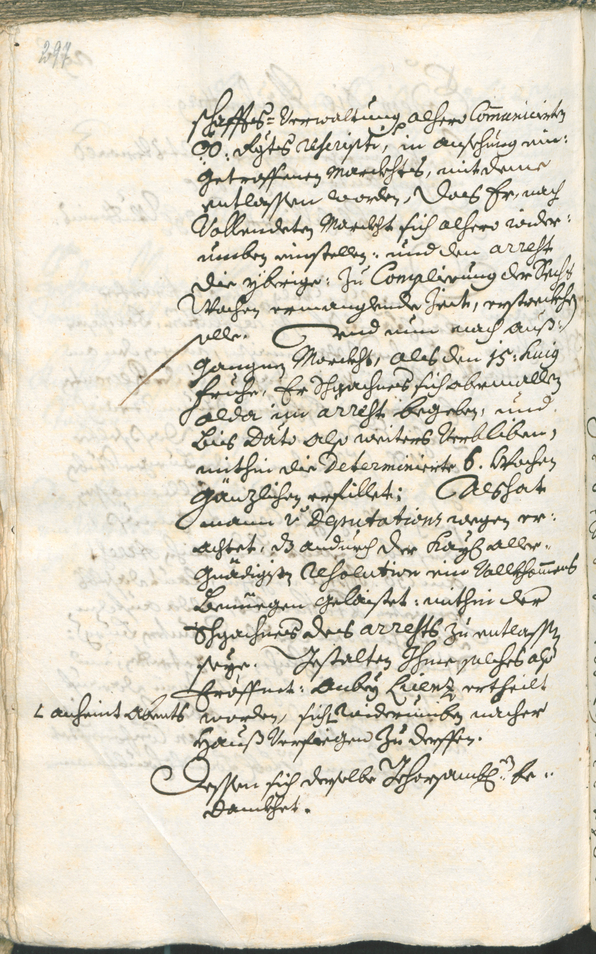 297
schaffts=Verwaltung alhero Communicirten
Rescripti, in ansehung ein=
getroffenen Marckhts, mit deme
entlassen worden, das Er, nach
Vollendeten Marckht sich alhero wider=
umben einstellen: und den arrest
die ybrige: zu Complirung der Sechs
Wochen ermanglende Zeit, erstreckhen
solle. Und nun nach auß=
gangnen Marckht, als den 15: huius
fruehe, Er Schgachnes sich abermallen
alda im arrest begeben, und
bis dato also weiters verbliben,
mithin die determinierte 6. Wochen
gänzlichen erfillet; Als hat
mann Deputations wegen er=
achtet, dz andurch der Kays: aller=
gnädigisten resolution ein Vollkhommens
benüegen gelaistet: mithin der
Schgachnes des arrests zu entlassen
seye. Gestalten Ihme solches also
Eröffnet: anbey Licenz ertheilt
worden, sich widerumben nacher
L an heint Abents
Hauß verfüegen zu derffen.
Dessen sich derselbe gehorsambist be=
danckhet.